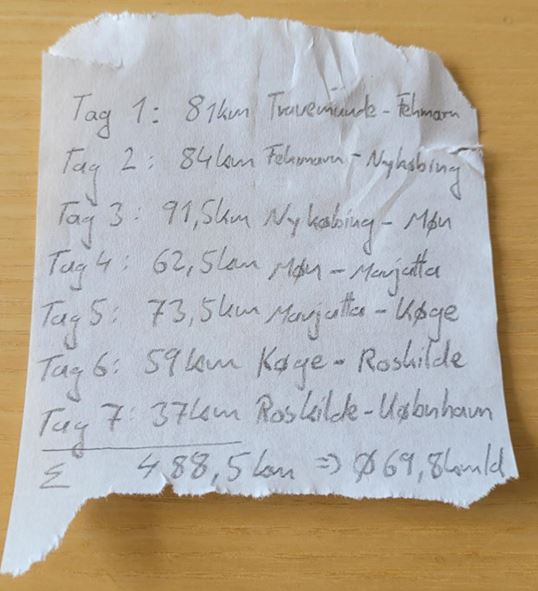 Tag 1: 81km Travemünde - Fehmarn
Tag 2: 84km Fehmarn - Nykøbing
Tag 3: 91,5km Nykøbing - Møn
Tag 4: 62,5km Møn - Marjatta
Tag 5: 73,5km Marjatta - Køge
Tag 6: 59km Køge - Roskilde
Tag 7: 37km Roskilde - København
Σ 488,5km => Ø69,8km/d